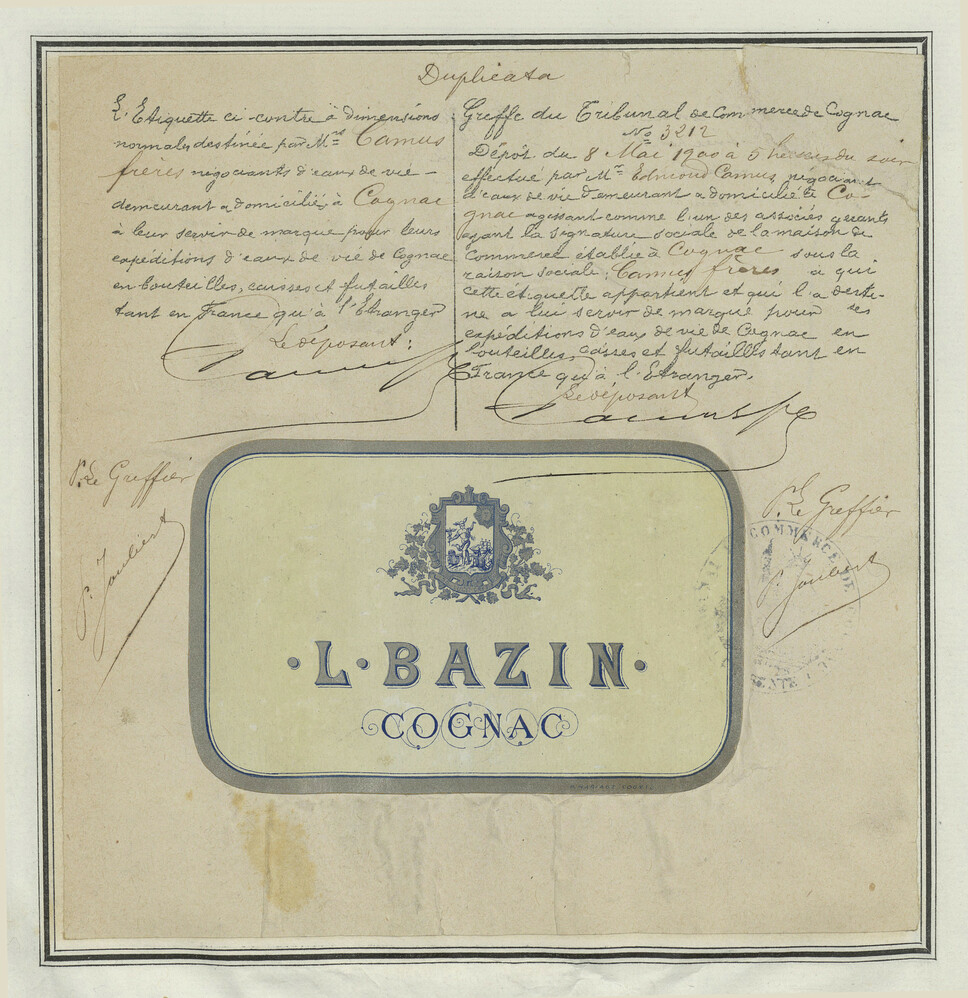 Duplicata
L'Etiquette ci-contre à dimensions
normales destinée par Mrs Camus
frères négociants d'eaux de vie
demeurant & domiciliés à Cognac
à leur servir de marque pour leurs
expéditions d'eaux de vie de Cognac
en bouteilles, caisses et futailles
tant en France qu'à l'Etranger
Le déposant:
Greffe du Tribunal de Commerce de Cognac
No 3212
Dépôt du 8 Mai 1900 à 5 heures du soir
effectué par Mr Edmond Camus, négociant
d'eaux de vie demeurant & domicilié à Co-
gnac agissant comme l'un des associés gérants
ayant la signature sociale de la maison de
Commerce établie à Cognac sous la
raison sociale: Camus frères à qui
cette étiquette appartient et qui l'a desti-
né a lui servir de marque pour ses
expéditions d'eaux de vie de Cognac en
bouteilles, caisses et futailles tant en
France qu'à l'Etranger.
Le déposant
P. Le Greffier
P. Joubert
P. Le Greffier
P. Joubert
COMMERCE DE
·L·BAZIN·
COGNAC